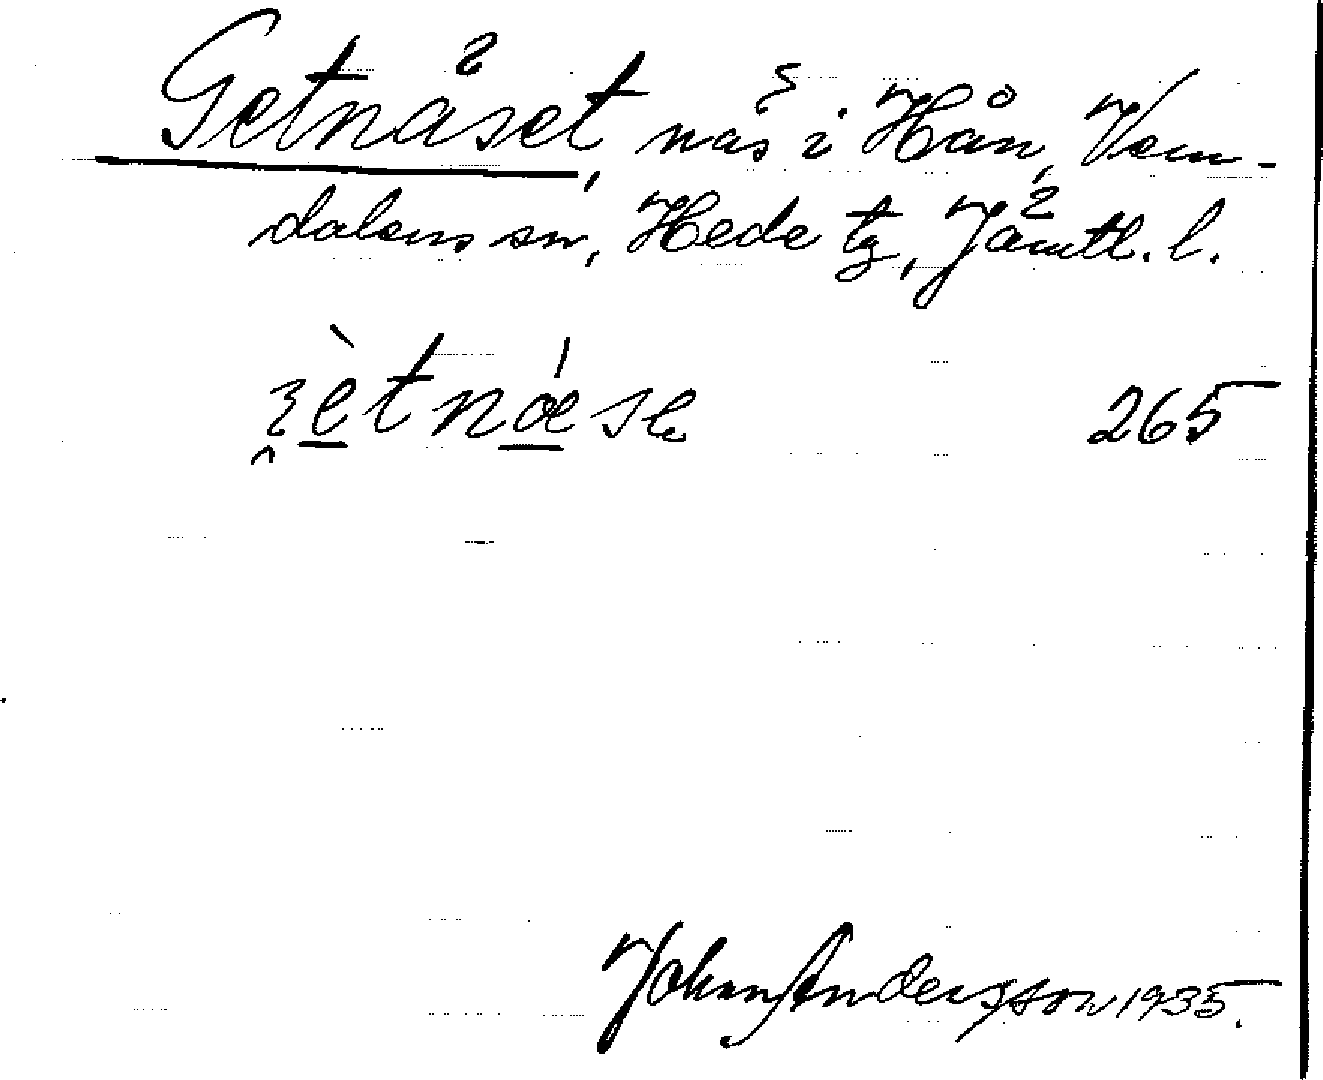 Getnäset, näs i Hån, Vem-
dalens sn, Hede tg, Jämtl. l.
265
Johan Andersson 1935.